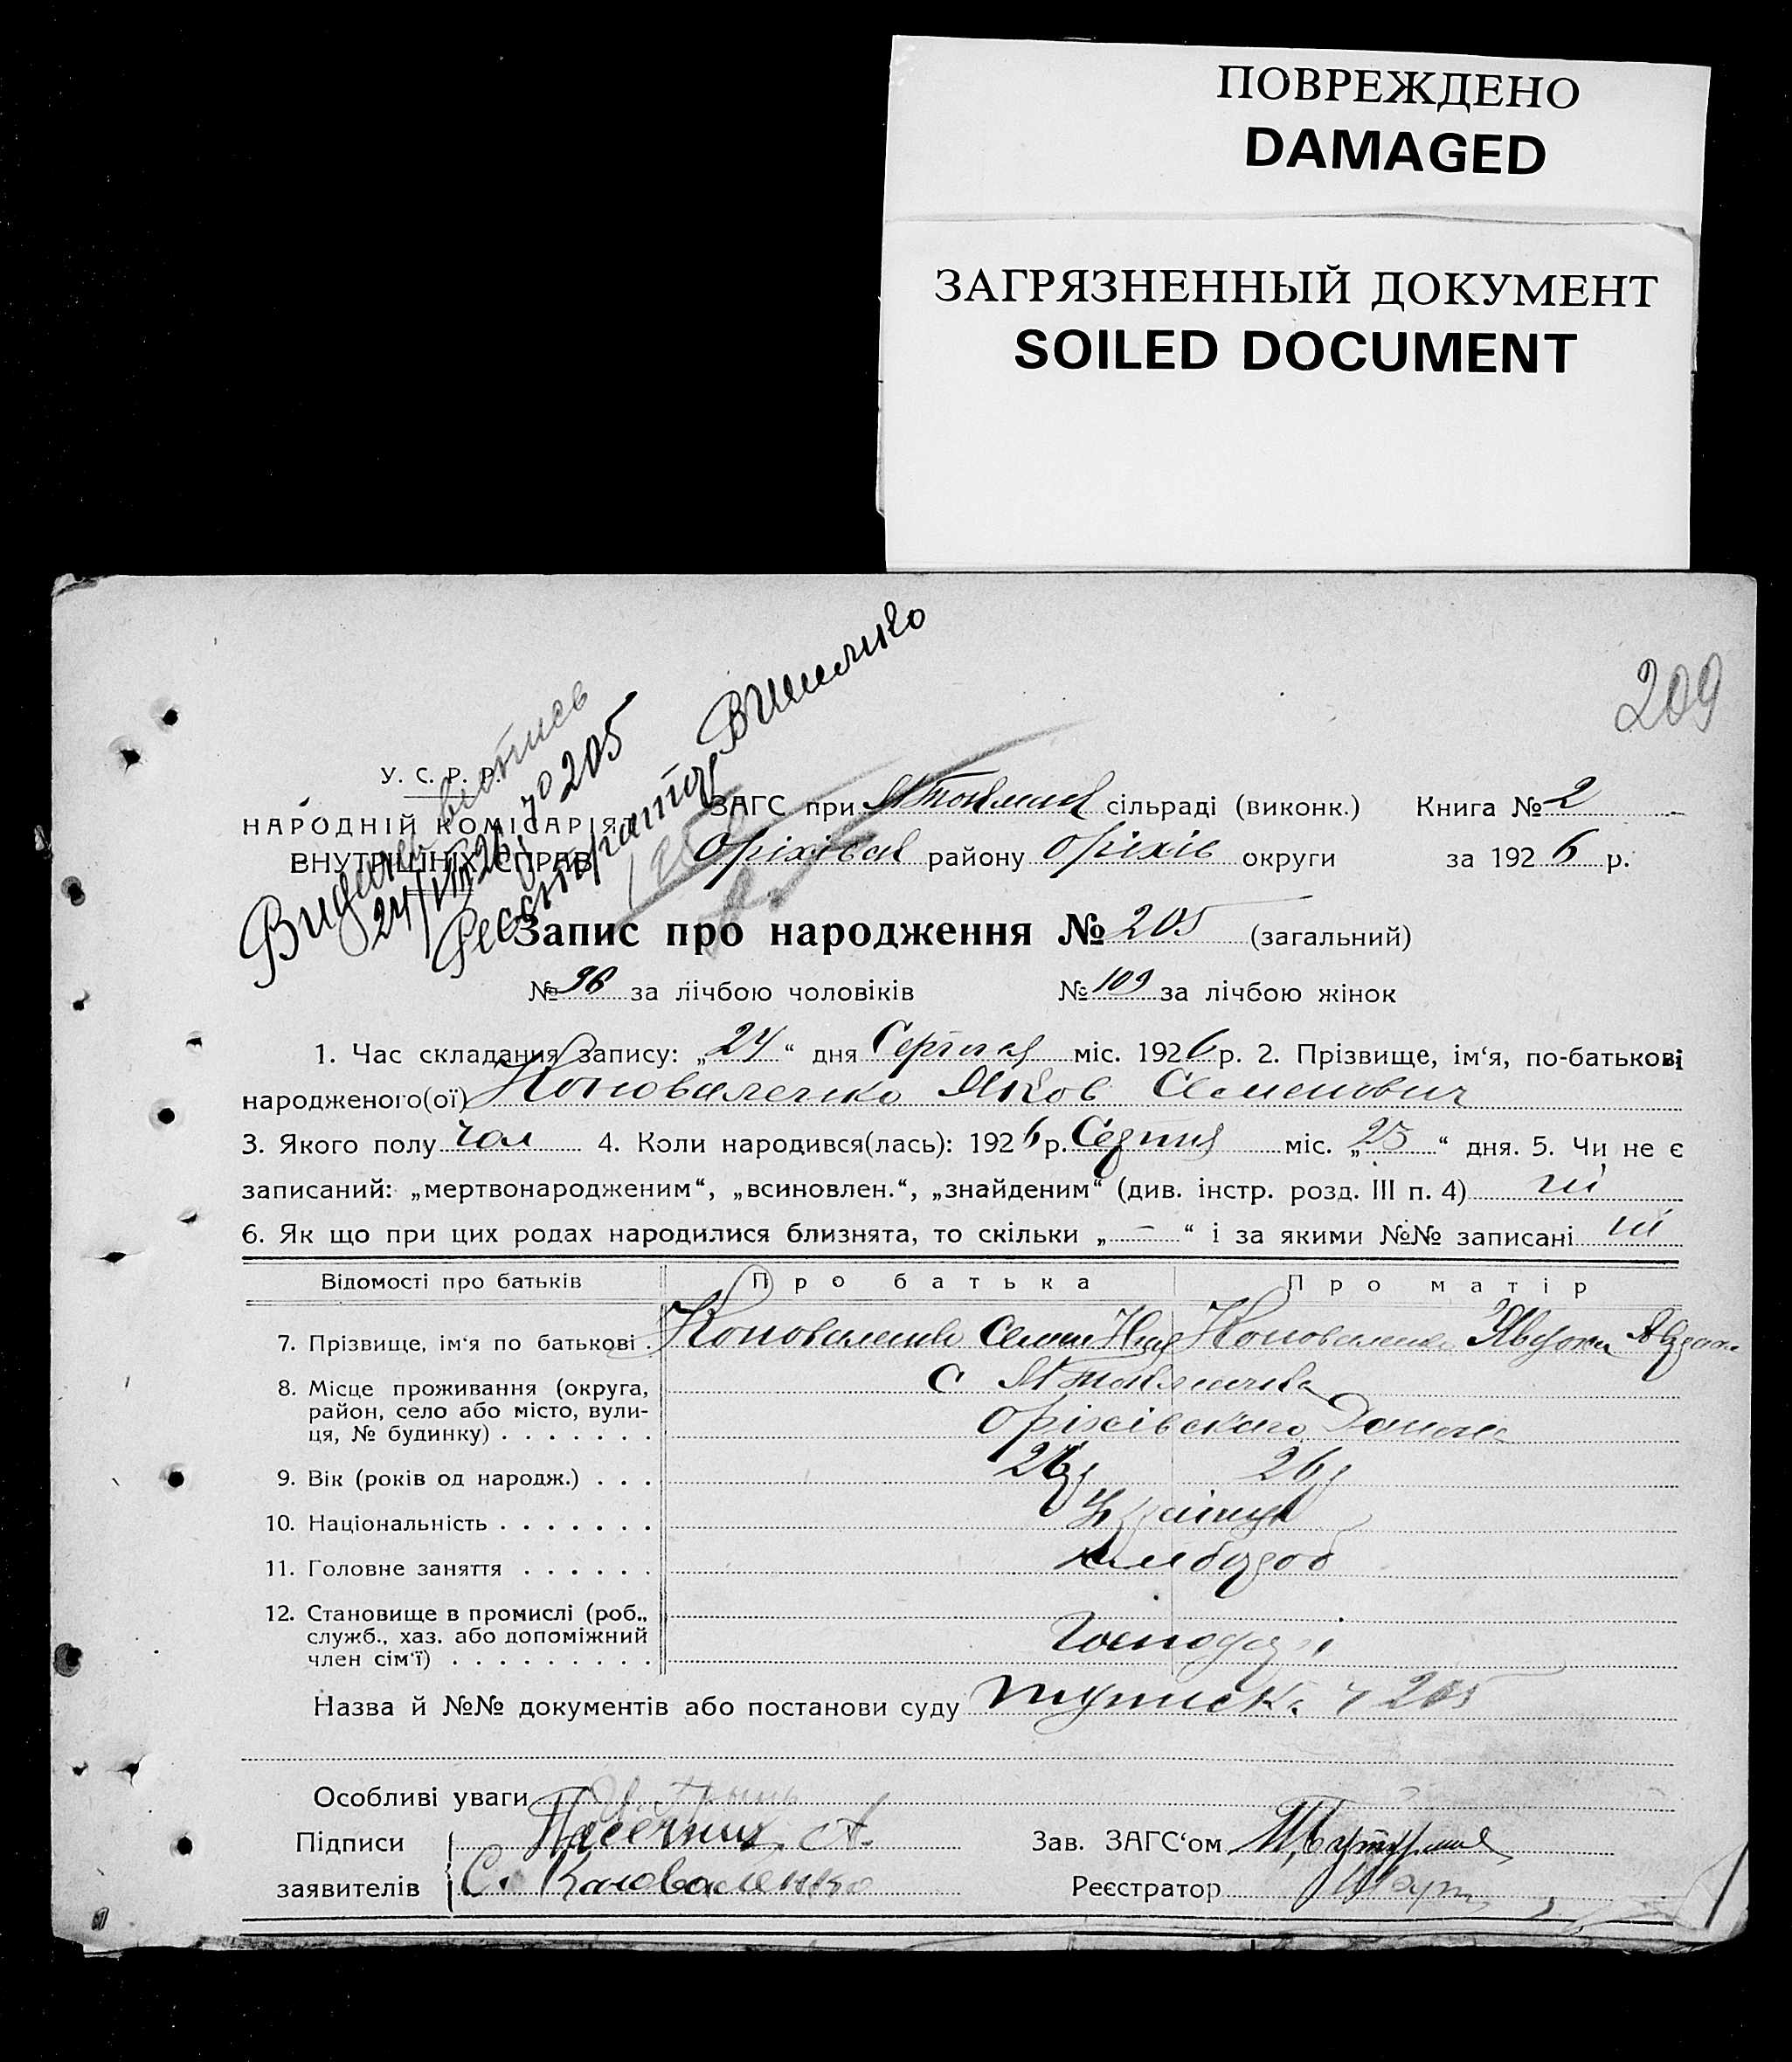 ПОВРЕЖДЕНО
DAMAGED
ЗАГРЯЗНЕННЫЙ ДОКУМЕНТ
SOILED DOCUMENT
209
24/VIII 26 р № 205
Реєстратор
У. С. Р. Р.
НАРОДНІЙ КОМІСАРІЯТ
ВНУТРІШНІХ СПРАВ
ЗАГС при сільраді (виконк.) Книга № 2
Оріхівськ району Оріхів округи за 1926 р.
Запис про народження № 205 (загальний)
№ 96 за лічбою чоловіків № 109 за лічбою жінок
1. Час складання запису: „24“ дня Серпня міс. 1926 р. 2. Прізвище, ім‘я, по-батькові
народженого(ої) Коноваленко Яков Семенович
3. Якого полу чол 4. Коли народився(лась): 1926 р. Серпня міс. „23“ дня. 5. Чи не є
записаний: „мертвонародженим“, „всиновлен.“, „знайденим“ (див. інстр. розд. III п. 4) ні
6. Як що при цих родах народилися близнята, то скільки „–“ і за якими №№ записані ні
Відомості про батьків Про батька Про матір
7. Прізвище, ім‘я по батькові . Коноваленко Семен Коноваленко
8. Місце проживання (округа,
район, село або місто, вули-
ця, № будинку) . . . . . . .
с
Оріхівського
9. Вік (років од народж.) . . . 26 р 26 р
10. Національність . . . . . . . Українці
11. Головне заняття . . . . . . хлібороб
12. Становище в промислі (роб.,
служб., хаз. або допоміжний
член сім‘ї) . . . . . . . . . Господар
Назва й №№ документів або постанови суду 205
Особливі уваги
Підписи А.
заявителів С. Коноваленко
Зав. ЗАГС‘ом
Реєстратор